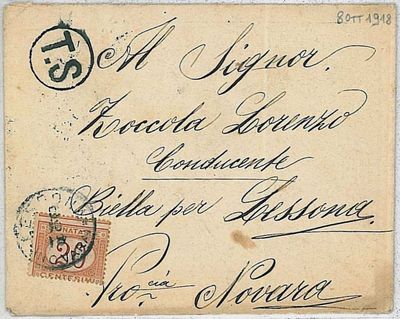 8 OTT 1918
T.S
Al Signor.
Zoccola Lorenzo
Conducente
Biella per Lessona
Pro.cia Novara
SEGNATASSE
20
CENTESIMI